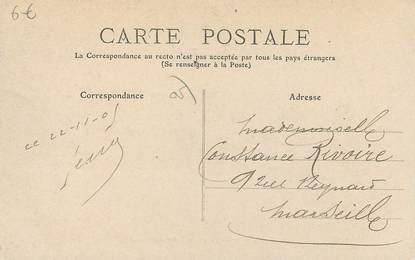 6€
CARTE POSTALE
La Correspondance au recto n'est pas acceptée par tous les pays étrangers
(Se renseigner à la Poste)
Correspondance
05
Adresse
ce 22-11-05
Mademoiselle
Constance Rivoire
Marseille